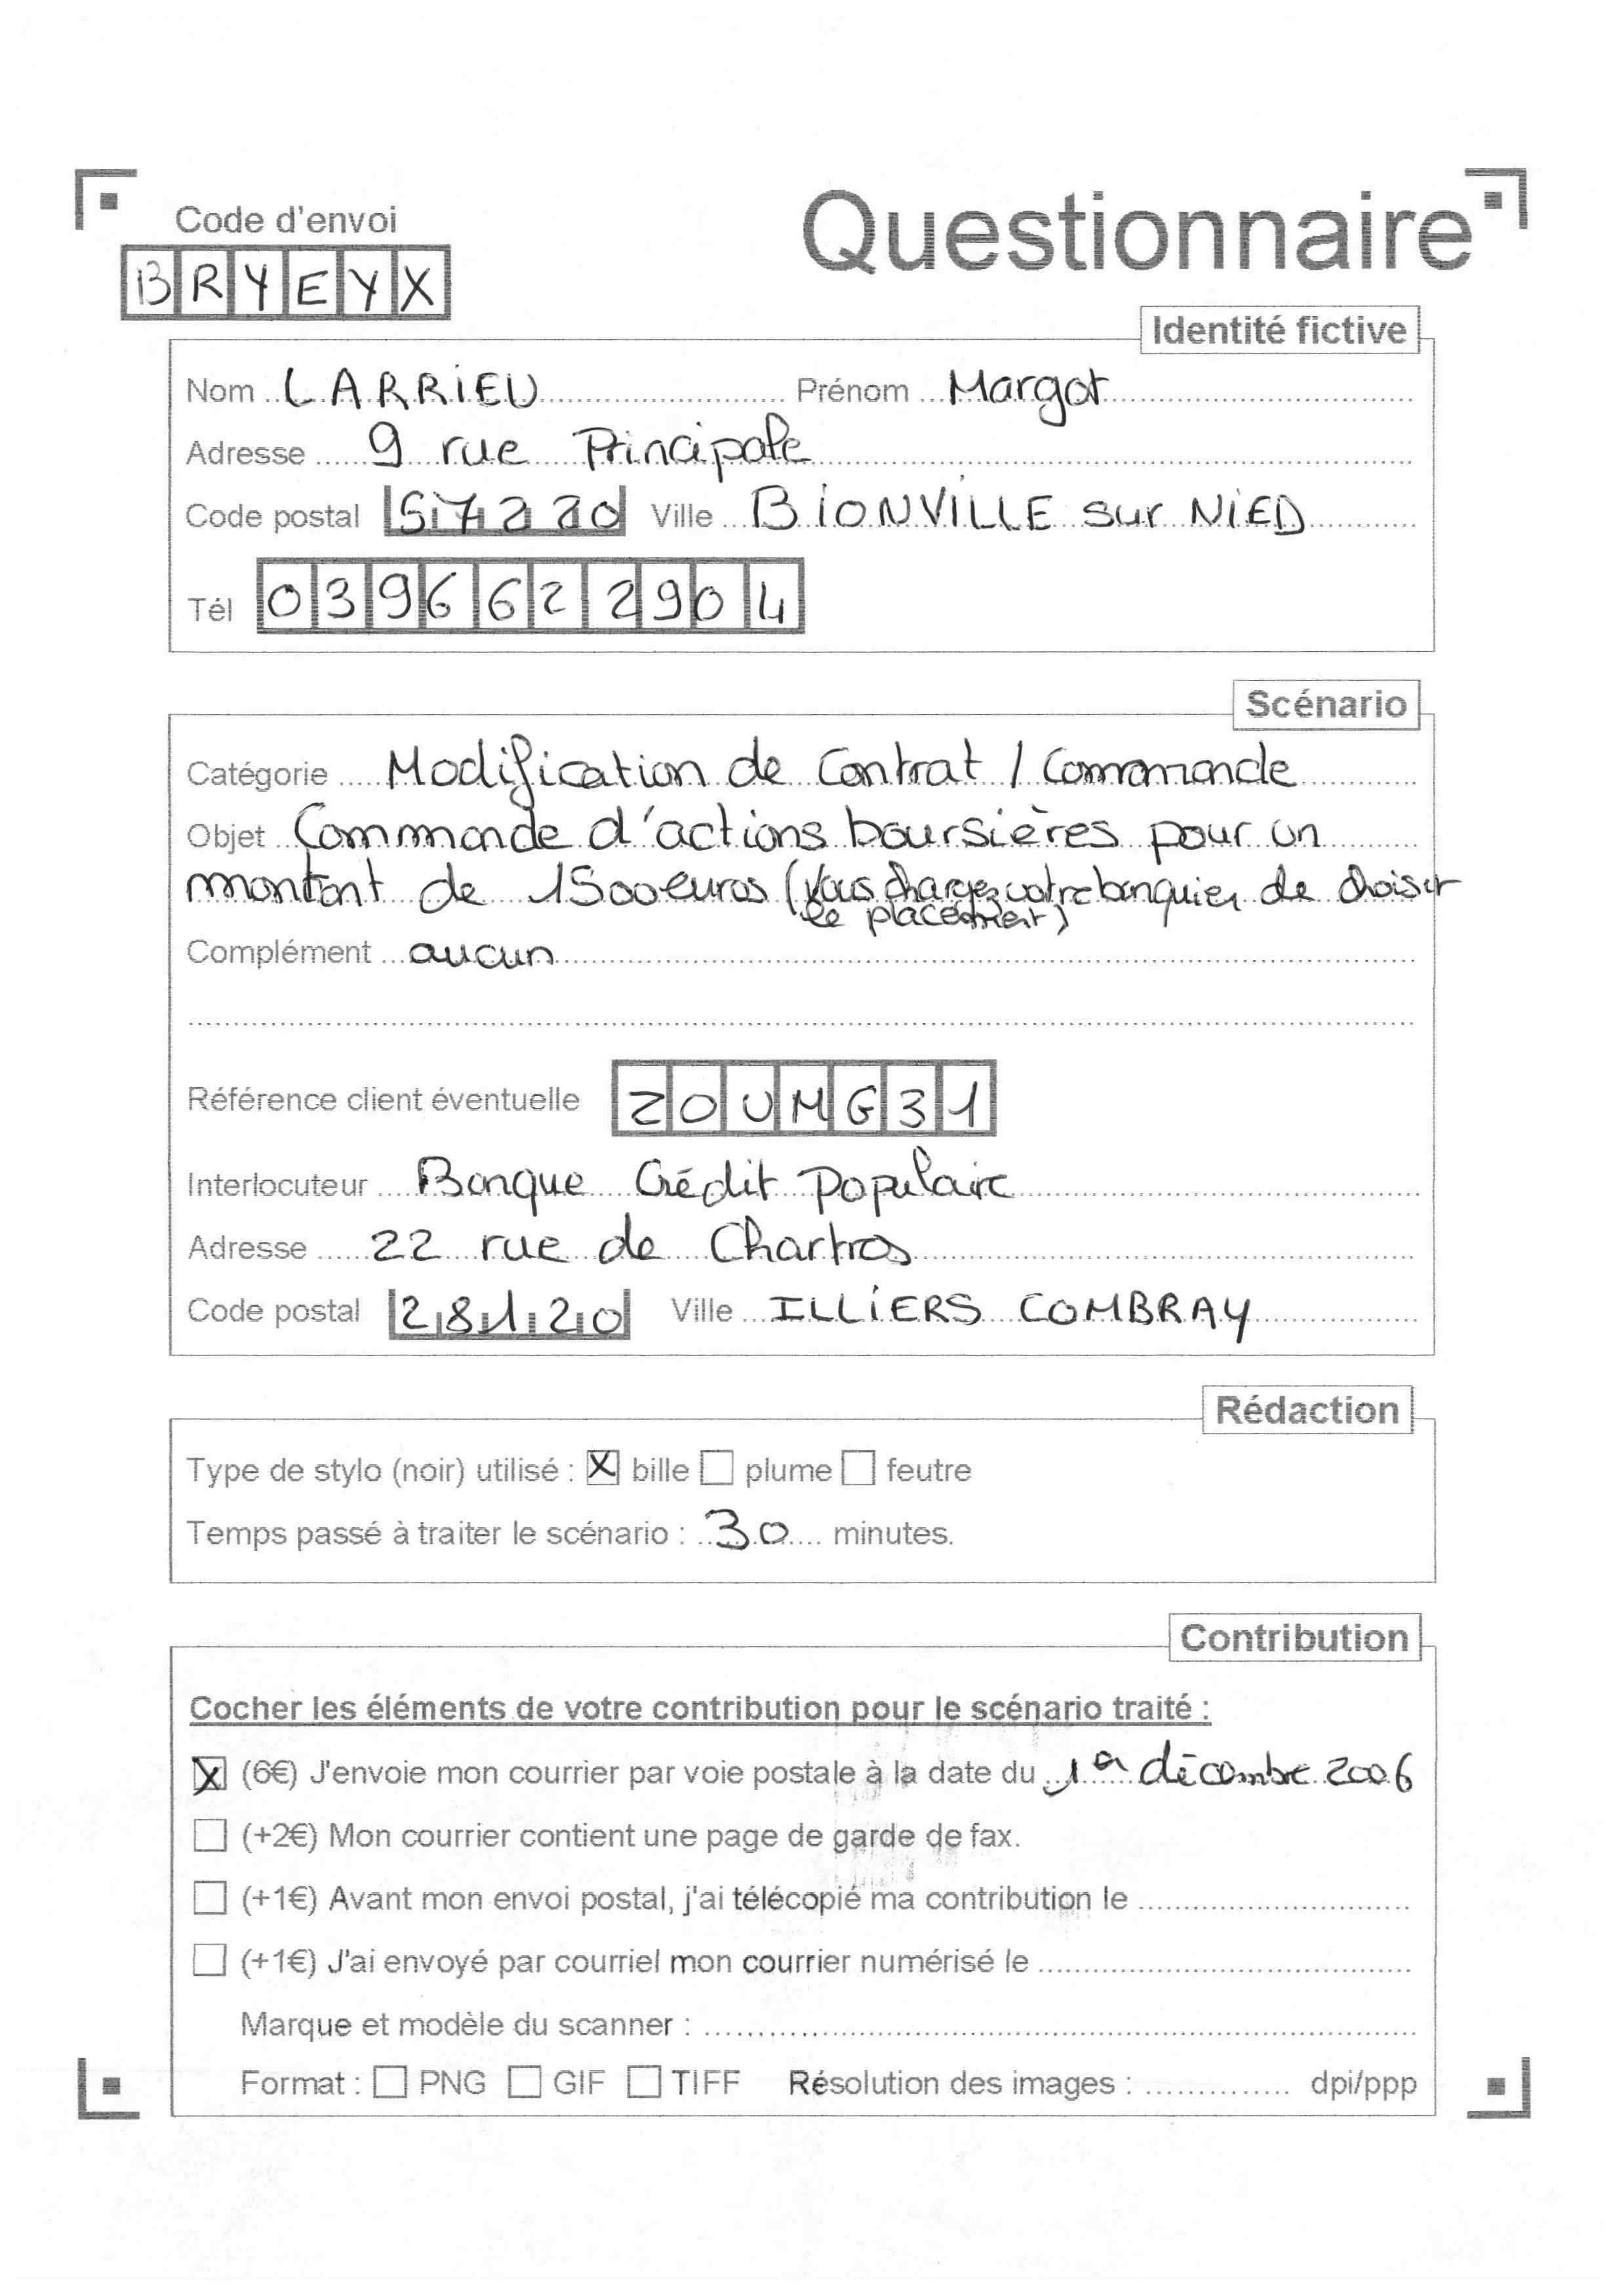 Code d'envoi
Questionnaire
BRYEYX
Identité fictive
Nom LARRIEU Prénom Margot
Adresse 9 rue Principale
Code postal 57220 Ville BIONVILLE sur NIED
Tél 0396622904
Scénario
Catégorie Modification de Contrat / Commande
Objet Commande d'actions boursières pour un
montant de 1500 euros (Vous chargez votre banquier de choisir
le placement)
Complément aucun
Référence client éventuelle ZOUMG31
Interlocuteur Banque Crédit Populaire
Adresse 22 rue de Chartres
Code postal 28120 Ville ILLIERS COMBRAY
Rédaction
Type de stylo (noir) utilisé : X bille plume feutre
Temps passé à traiter le scénario : 30 minutes.
Contribution
Cocher les éléments de votre contribution pour le scénario traité :
X (6€) J'envoie mon courrier par voie postale à la date du 1er décembre 2006
(+2€) Mon courrier contient une page de garde de fax.
(+1€) Avant mon envoi postal, j'ai télécopié ma contribution le
(+1€) J'ai envoyé par courriel mon courrier numérisé le
Marque et modèle du scanner :
Format : PNG GIF TIFF Résolution des images : dpi/ppp